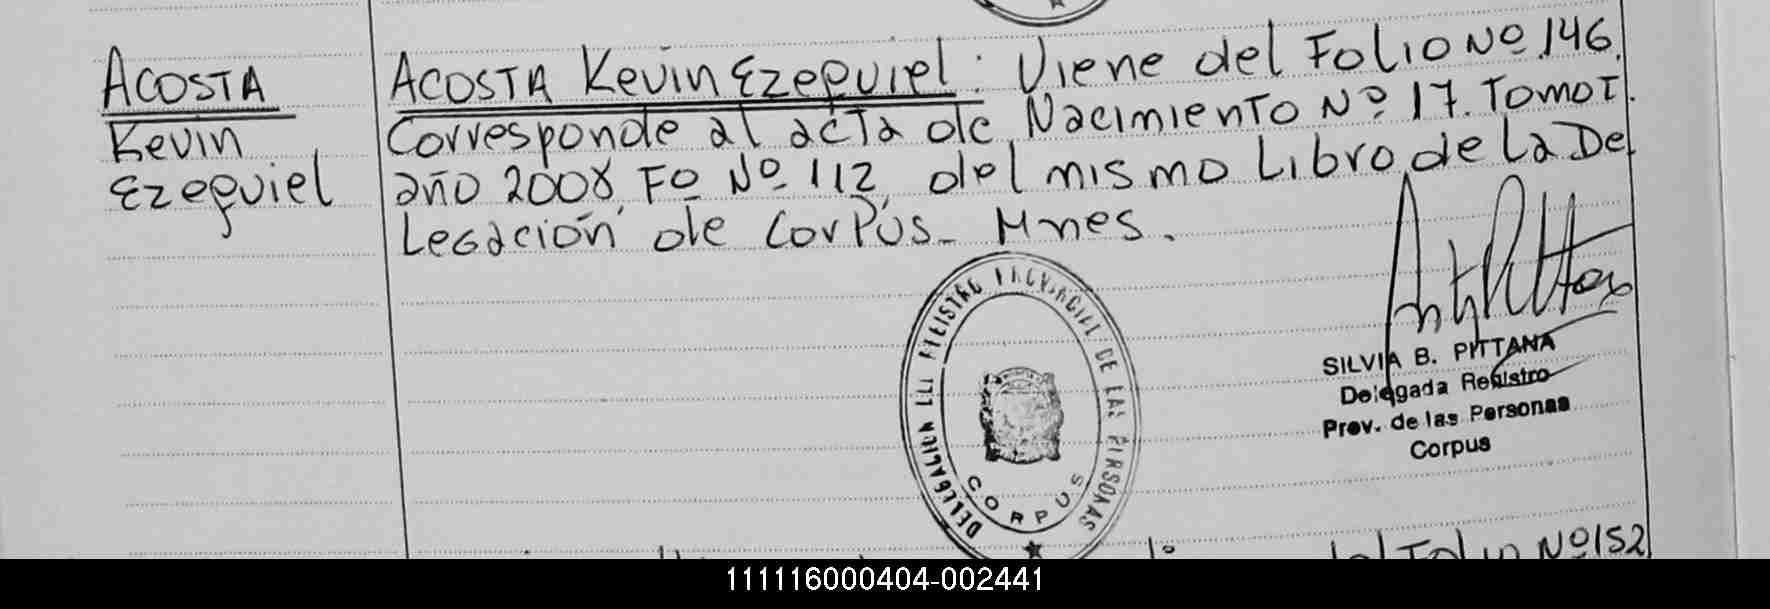 ACOSTA
Kevin
Ezequiel
ACOSTA Kevin Ezequiel: Viene del Folio Nº 146.
Corresponde al acta de Nacimiento Nº 17. Tomo I.
año 2008, Fº Nº 112, del mismo Libro de la De
Legación de Corpus - Mnes.
DELEGACION DEL REGISTRO PROVINCIAL DE LAS PERSONAS
CORPUS
SILVIA B. PITTANA
Delegada Registro
Prov. de las Personas
Corpus
Folio Nº 152
111116000404-002441